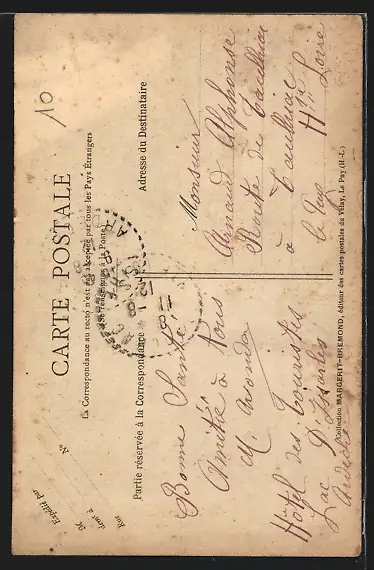 10
CARTE POSTALE
La Correspondance au recto n'est pas acceptée par tous les Pays Étrangers
(Se renseigner à la Poste)
Nº
Expédié par
M
demt à
Rue
Partie réservée à la Correspondance
Adresse du Destinataire
Bonne Santé
Amitié à tous
M.
Hôtel des Touristes
Lac D'Issarlès
Ardèche
Monsieur
Arnaud Alphonse
Route de Taulhac
à Taulhac
le Puy
Hte Loire
Collection MARGERIT-BREMOND, éditeur des cartes postales du Vélay, Le Puy (H.-L.)